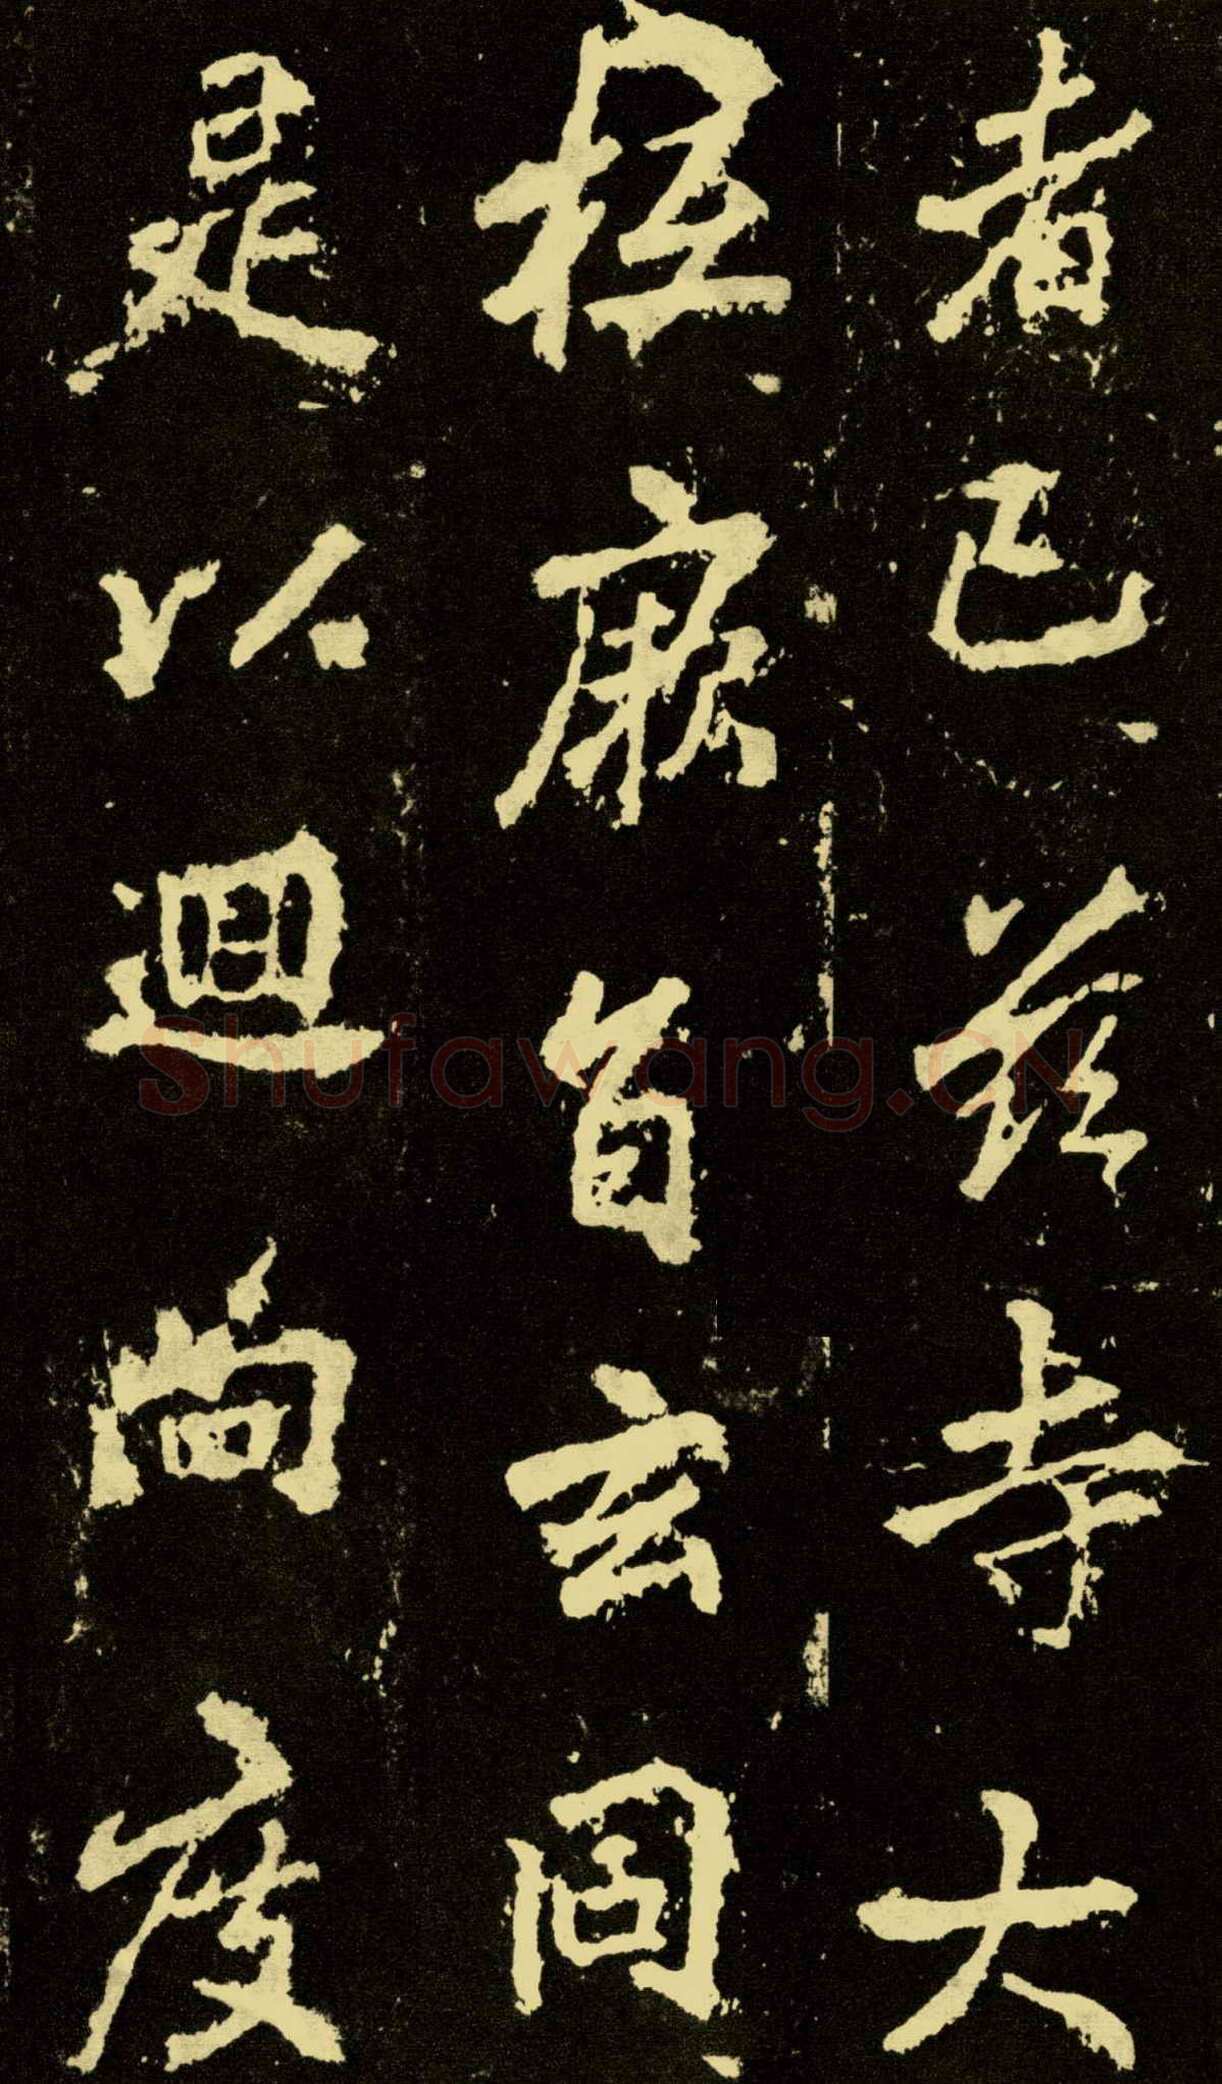 者已茲寺大
抵厥旨玄同
是以迴向度
Shufawang.CN